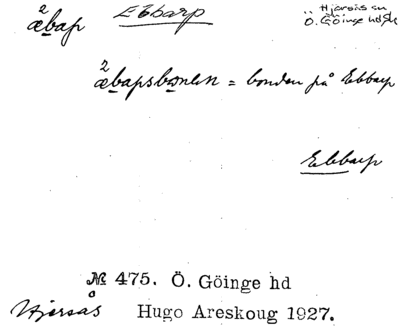 ²æbap Ebbarp Hjärsås sn
Ö. Göinge hd Sk
²æbapsbonen = bonden på Ebbarp
Ebbarp
№ 475. Ö. Göinge hd
Hjärsås Hugo Areskoug 1927.